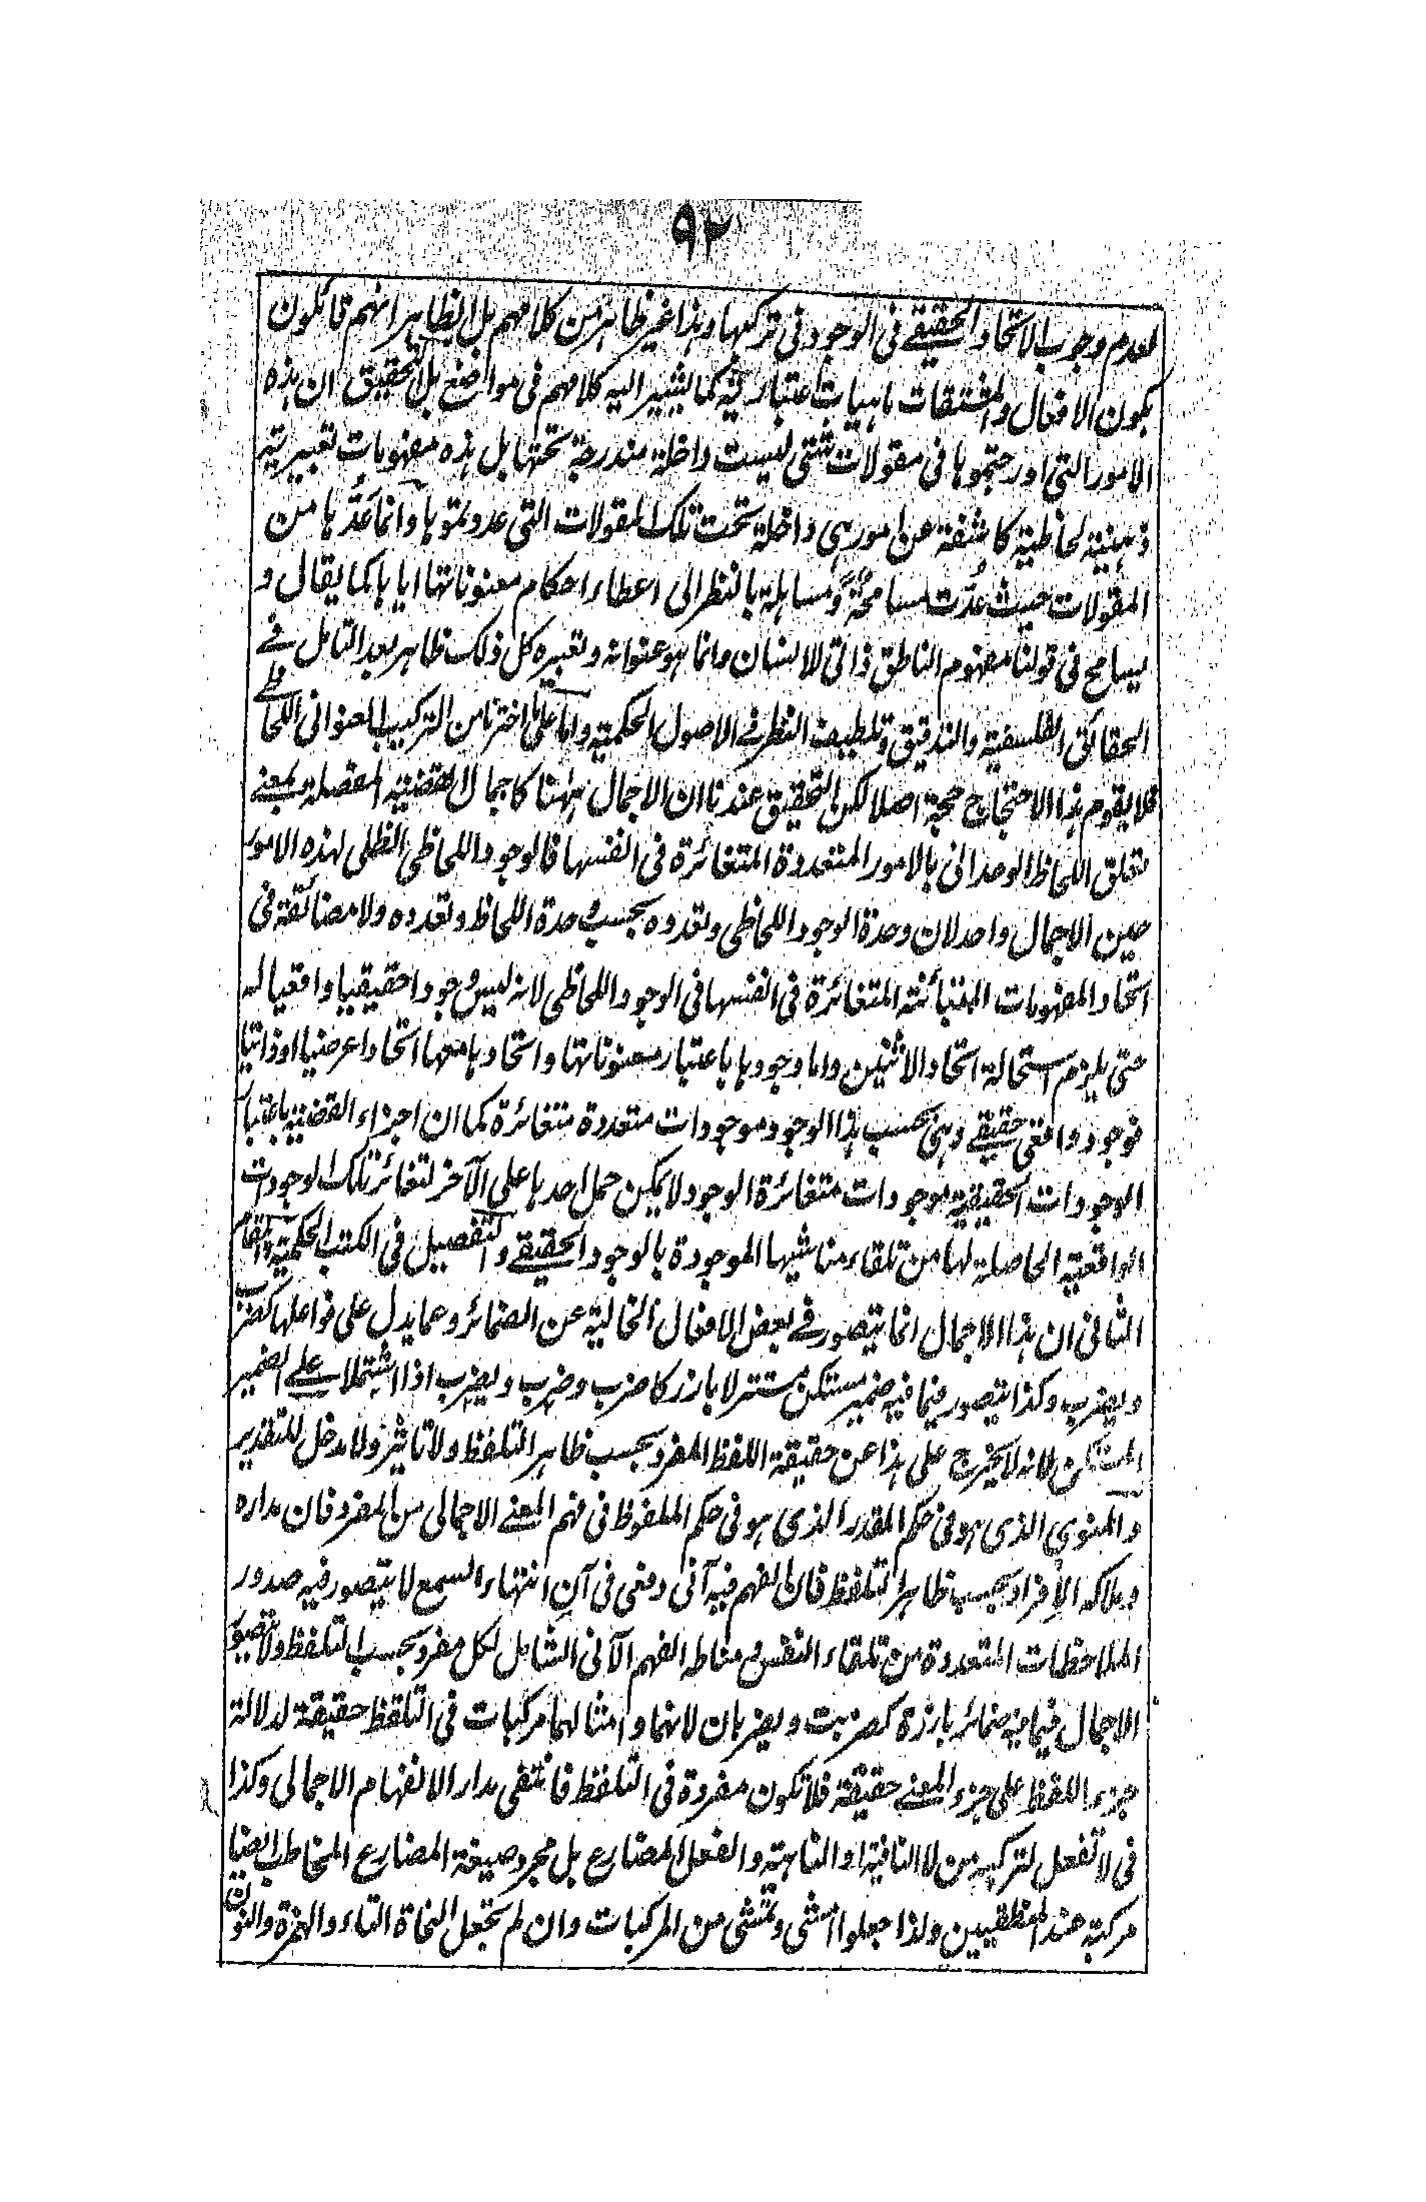 ٩٢
لعدم وجوب الاتحاد الحقيقے فى الوجود فى تركبها وهذا غير ظاهر من كلامهم بل الظاهر انهم قائلون
بكون الافعال والمشتقات ماهيات اعتبارية كما يشير اليه كلامهم فى مواضع بل التحقيق ان هذه
الامور التى اورجتموها فى مقولات شتى ليست داخلة مندرجة تحتها بل هذه مفهومات تعبيرية
ذهنية لحاظية كاشفة عن امور هى داخلة تحت تلك المقولات التى عدوتموها وانما عدّها من
المقولات حيث عدّت مسامحة ومساهلة بالنظر الى اعطاء احكام معنوناتها اياها كما يقال و
يسامح فى قولنا مفهوم الناطق ذاتى للانسان وانما هو عنوانه وتعبيره كل ذلك ظاهر بعد التامل فے
الحقائق الفلسفية والتدقيق وتلطيف النظر فے الاصول الحكمية واما على ما اخترنا من التركيب العنوانى اللحاظے
فلا يقوم هذا الاحتجاج حجة اصلا لكن التحقيق عندنا ان الاجمال ههنا كاجمال القضية المفصلة بمعنے
تعلق اللحاظ الوحدانى بالامور المتعددة المتغائرة فى انفسها فالوجود اللحاظى الظلى لهذه الامور
حين الاجمال واحد لان وحدة الوجود اللحاظى وتعدده بحسب وحدة اللحاظ وتعدده ولا مضائقة فى
اتحاد المفهومات المتبائنة المتغائرة فى انفسها فى الوجود اللحاظى لانه ليس وجودا حقيقيا واقعيا له
حتى يلزم استحالة اتحاد الاثنين واما وجودها باعتبار معنوناتها واتحادها معها اتحادا عرضيا او ذاتيا
فوجود واقعى حقيقے وهى بحسب هذا الوجود موجودات متعددة متغائرة كما ان اجزاء القضية باعتبار
الوجودات الحقيقية موجودات متغائرة الوجود لا يمكن حمل احدها على الآخر لتغائر تلك الوجودات
الواقعية الحاصلة لها من تلقاء مناشيها الموجودة بالوجود الحقيقے والتفصيل فى الكتب الحكمية المقام
الثانى ان هذا الاجمال انما يتصور فے بعض الافعال الخالية عن الضمائر وعما يدل على فواعلها كضرب
ويضرب وكذا يتصور فيما فيه ضمير مستكن مستتر لا بارز كاضرب وضرب ويضرب اذا اشتملا علے الضمير
المستكن لانه لا يخرج على هذا عن حقيقة اللفظ المفرد بحسب ظاهر التلفظ ولا تاثير ولا مدخل للتقدير
والمنوى الذى هو فى حكم المقدر الذى هو فى حكم الملفوظ فى فهم المعنے الاجمالى من المفرد فان مداره
وملاكه الافراد بحسب ظاهر التلفظ فان الفهم فيه آنى دفعى فى آن انتهاء السمع لا يتصور فيه صدور
الملاحظات المتعددة من تلقاء النفس و مناط الفهم الآنى الشامل لكل مفرد بحسب التلفظ ولا يتصور
الاجمال فيما فيه ضمائر بارزة كضربت ويضربان لانهما وامثالهما مركبات فى التلفظ حقيقة لدلالة
جزء اللفظ على جزء المعنے حقيقة فلا تكون مفردة فى التلفظ فانتفى مدار الانفهام الاجمالى وكذا
فى لا تفعل لتركبه من لا النافية او الناهية والفعل المضارع بل مجرد صيغة المضارع المخاطب ايضا
مركبة عند المنطقيين ولذا جعلوا امشى وتمشى من المركبات وان لم تجعل النحاة التاء والهمزة والنون